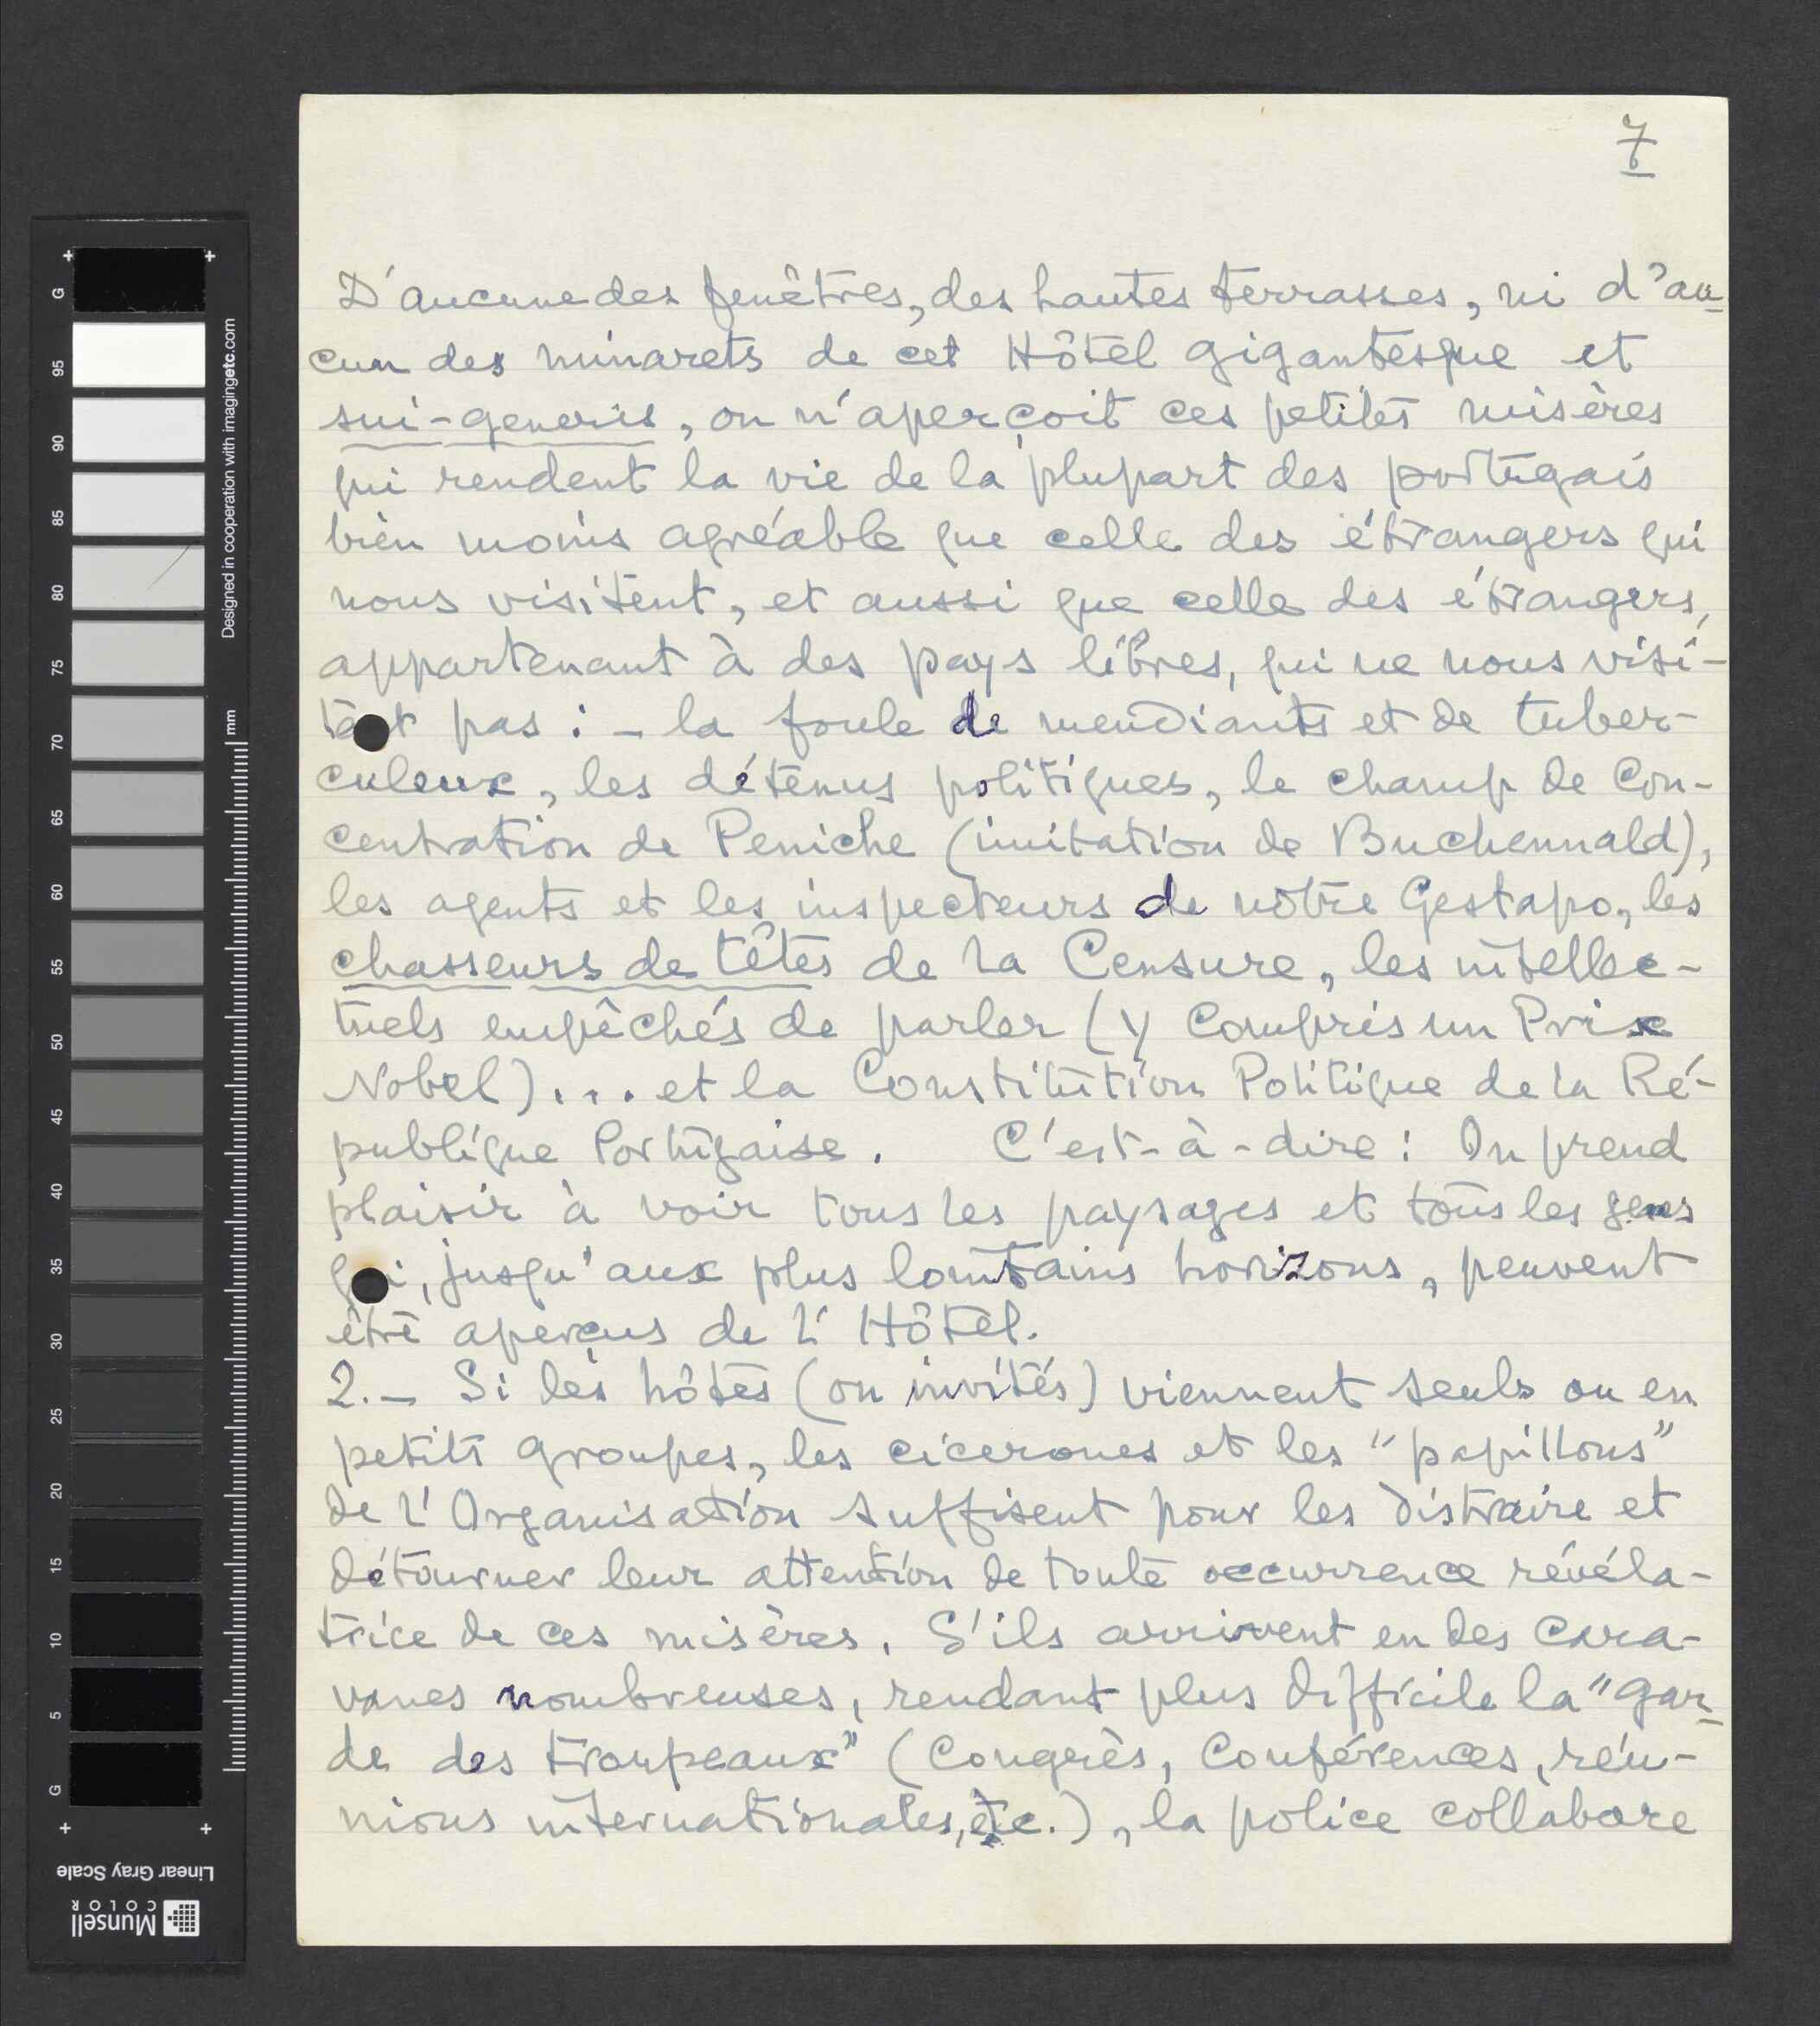 7
D'aucune des fenêtres, des hautes terrasses, ni d'au-
cun des minarets de cet Hôtel gigantesque et
sui-generis, on n'aperçoit ces petites misères
qui rendent la vie de la plupart des portugais
bien moins agréable que celle des étrangers qui
nous visitent, et aussi que celle des étrangers,
appartenant à des pays libres, qui ne nous visi-
tent pas : - la foule de mendiants et de tuber-
culeux, les détenus politiques, le champ de Con-
centration de Peniche (imitation de Buchennald),
les agents et les inspecteurs de nôtre Gestapo, les
chasseurs de têtes de la Censure, les intellec-
tuels empêchés de parler (y compris un Prix
Nobel)... et la Constitution Politique de la Ré-
publique Portugaise. C'est-à-dire : On prend
plaisir à voir tous les paysages et tous les gens
qui, jusqu'aux plus lointains horizons, peuvent
être aperçus de l'Hôtel.
2.- Si les hôtes (ou invités) viennent seuls ou en
petits groupes, les cicerones et les "papillons"
de l'Organisation suffisent pour les distraire et
détourner leur attention de toute occurrence révéla-
trice de ces misères. S'ils arrivent en des cara-
vanes nombreuses, rendant plus difficile la "gar-
de des troupeaux" (Congrès, Conférences, réu-
nions internationales, etc.), la police collabore
G
95
90
85
80
75
70
65
60
55
50
45
40
35
30
25
20
15
10
5
G
mm
Designed in cooperation with imagingetc.com
Linear Gray Scale
Munsell
COLOR